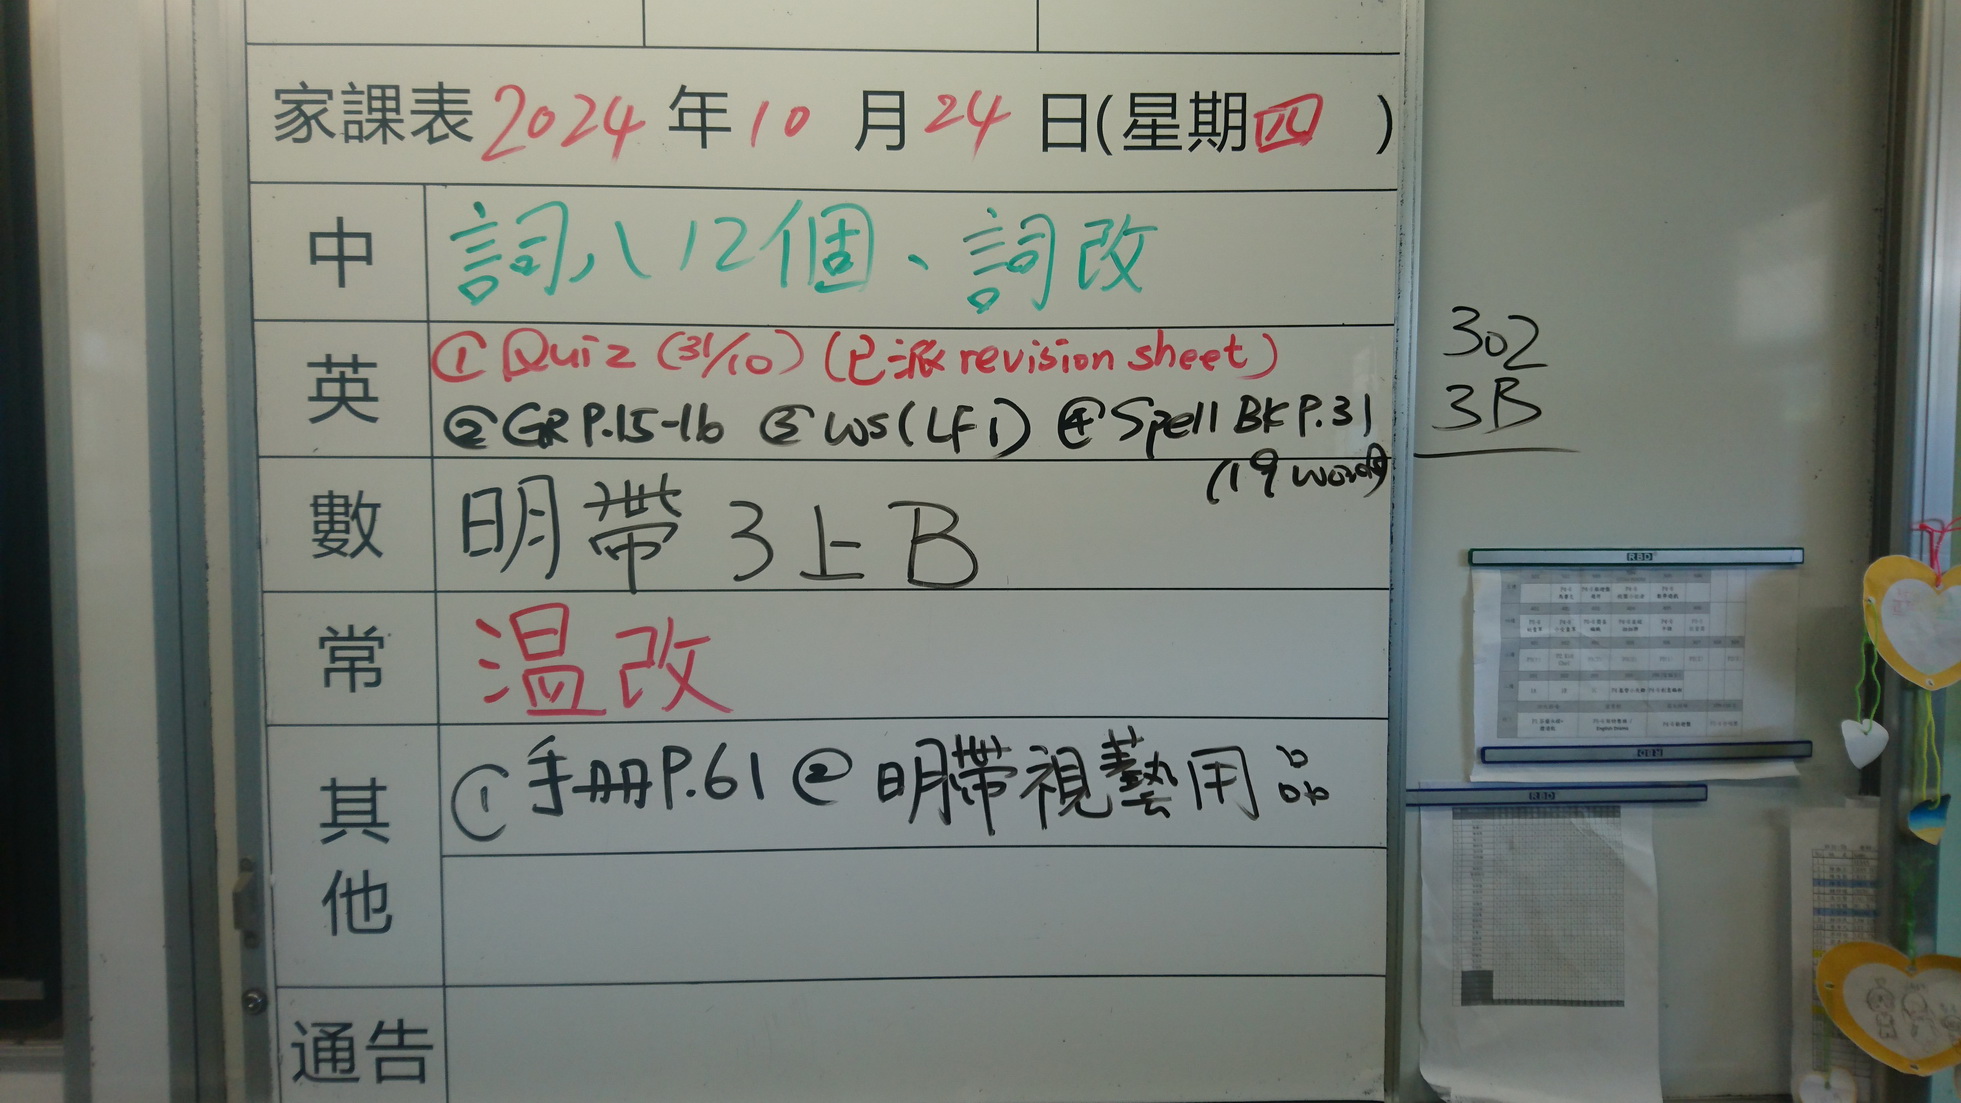 家課表 2024 年 10 月 24 日(星期四 )
中 詞八12個、詞改
英 ① Quiz (31/10) (已派 revision sheet)
② GR P.15-16 ③ WS (LF1) ④ Spell BK P.31
(19 words)
數 明帶 3上B
常 温改
其他 ① 手冊 P.61 ② 明帶視藝用品
通告
302
3B
RBD
RBD
RBD